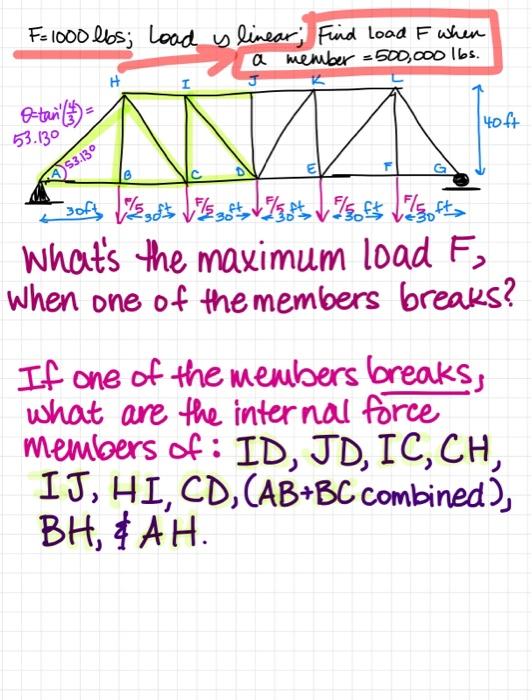 F=1000 lbs; Load is linear; Find load F when
a member = 500,000 lbs.
H I J K L
θ=tan⁻¹(4/3)=
53.13°
40ft
53.13°
A B C D E F G
F/5 F/5 F/5 F/5 F/5
30ft 30 ft 30 ft 30 ft 30 ft 30 ft
What's the maximum load F,
when one of the members breaks?
If one of the members breaks,
what are the internal force
members of: ID, JD, IC, CH,
IJ, HI, CD, (AB+BC combined),
BH, & AH.